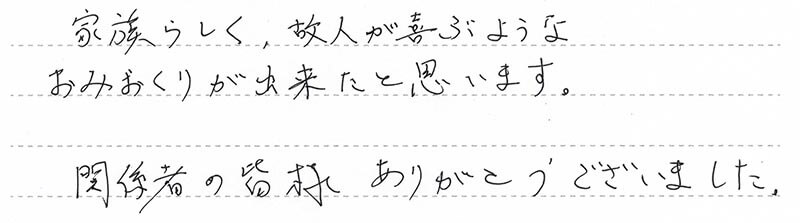 家族らしく、故人が喜ぶような
おみおくりが出来たと思います。
関係者の皆様 ありがとうございました。